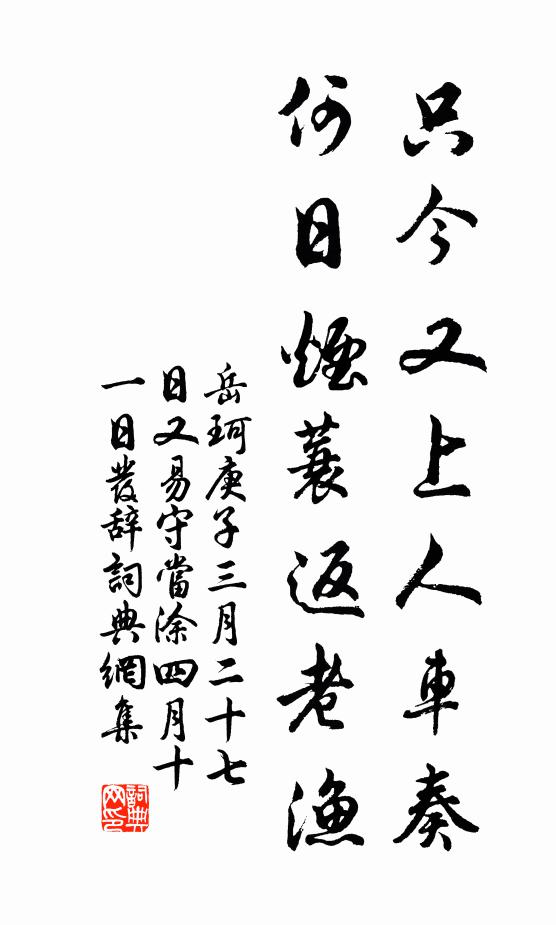 只今又上人車奏
何日煙蓑返老漁
岳珂庚子三月二十七
日又易守當涂四月十
一日發辭詞典網集
詞典
网印